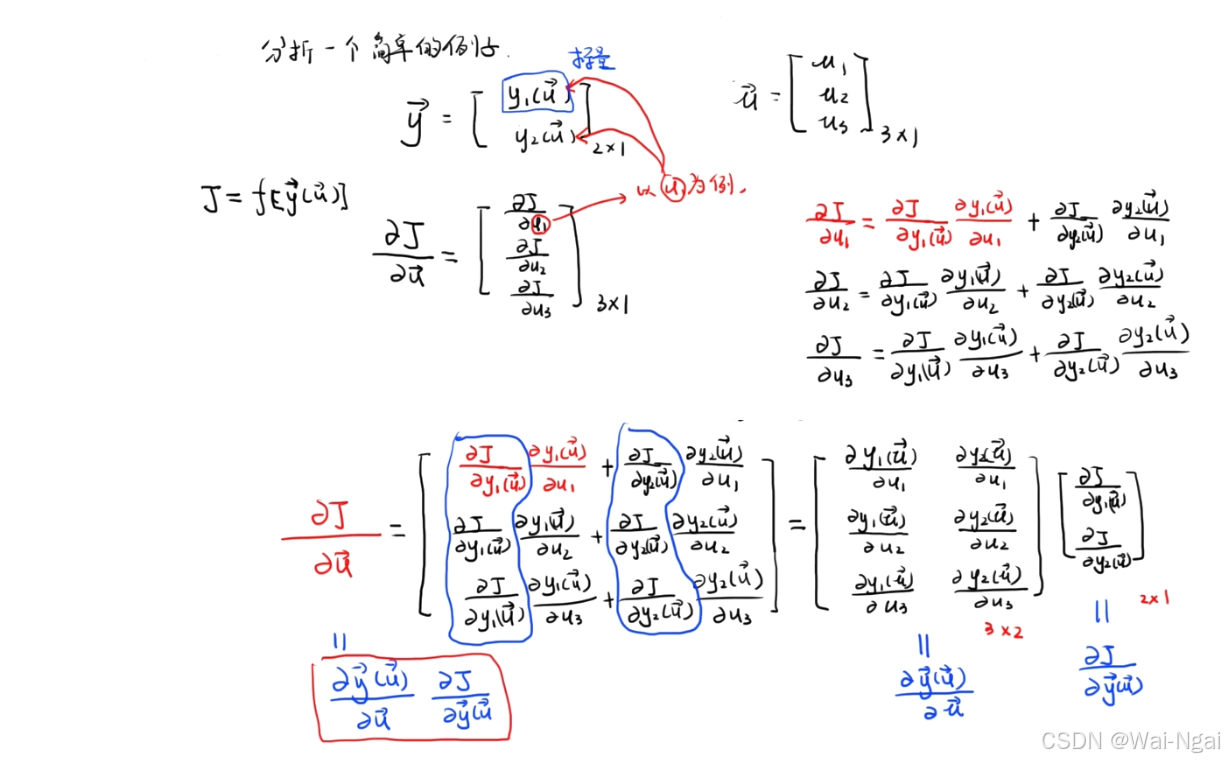 分析一个简单的例子.
标量
$\vec{y} = \begin{bmatrix} y_1(\vec{u}) \\ y_2(\vec{u}) \end{bmatrix}_{2 \times 1}$
$\vec{u} = \begin{bmatrix} u_1 \\ u_2 \\ u_3 \end{bmatrix}_{3 \times 1}$
$J = f[\vec{y}(\vec{u})]$
$\frac{\partial J}{\partial \vec{u}} = \begin{bmatrix} \frac{\partial J}{\partial u_1} \\ \frac{\partial J}{\partial u_2} \\ \frac{\partial J}{\partial u_3} \end{bmatrix}_{3 \times 1}$
以 $u_1$ 为例.
$\frac{\partial J}{\partial u_1} = \frac{\partial J}{\partial y_1(\vec{u})} \frac{\partial y_1(\vec{u})}{\partial u_1} + \frac{\partial J}{\partial y_2(\vec{u})} \frac{\partial y_2(\vec{u})}{\partial u_1}$
$\frac{\partial J}{\partial u_2} = \frac{\partial J}{\partial y_1(\vec{u})} \frac{\partial y_1(\vec{u})}{\partial u_2} + \frac{\partial J}{\partial y_2(\vec{u})} \frac{\partial y_2(\vec{u})}{\partial u_2}$
$\frac{\partial J}{\partial u_3} = \frac{\partial J}{\partial y_1(\vec{u})} \frac{\partial y_1(\vec{u})}{\partial u_3} + \frac{\partial J}{\partial y_2(\vec{u})} \frac{\partial y_2(\vec{u})}{\partial u_3}$
$\frac{\partial J}{\partial \vec{u}} = \begin{bmatrix} \frac{\partial J}{\partial y_1(\vec{u})} \frac{\partial y_1(\vec{u})}{\partial u_1} + \frac{\partial J}{\partial y_2(\vec{u})} \frac{\partial y_2(\vec{u})}{\partial u_1} \\ \frac{\partial J}{\partial y_1(\vec{u})} \frac{\partial y_1(\vec{u})}{\partial u_2} + \frac{\partial J}{\partial y_2(\vec{u})} \frac{\partial y_2(\vec{u})}{\partial u_2} \\ \frac{\partial J}{\partial y_1(\vec{u})} \frac{\partial y_1(\vec{u})}{\partial u_3} + \frac{\partial J}{\partial y_2(\vec{u})} \frac{\partial y_2(\vec{u})}{\partial u_3} \end{bmatrix} = \begin{bmatrix} \frac{\partial y_1(\vec{u})}{\partial u_1} & \frac{\partial y_2(\vec{u})}{\partial u_1} \\ \frac{\partial y_1(\vec{u})}{\partial u_2} & \frac{\partial y_2(\vec{u})}{\partial u_2} \\ \frac{\partial y_1(\vec{u})}{\partial u_3} & \frac{\partial y_2(\vec{u})}{\partial u_3} \end{bmatrix} \begin{bmatrix} \frac{\partial J}{\partial y_1(\vec{u})} \\ \frac{\partial J}{\partial y_2(\vec{u})} \end{bmatrix}$
3×2
2×1
=
$\frac{\partial \vec{y}(\vec{u})}{\partial \vec{u}} \frac{\partial J}{\partial \vec{y}(\vec{u}}$
=
$\frac{\partial \vec{y}(\vec{u})}{\partial \vec{u}}$
=
$\frac{\partial J}{\partial \vec{y}(\vec{u})}$
CSDN @Wai-Ngai